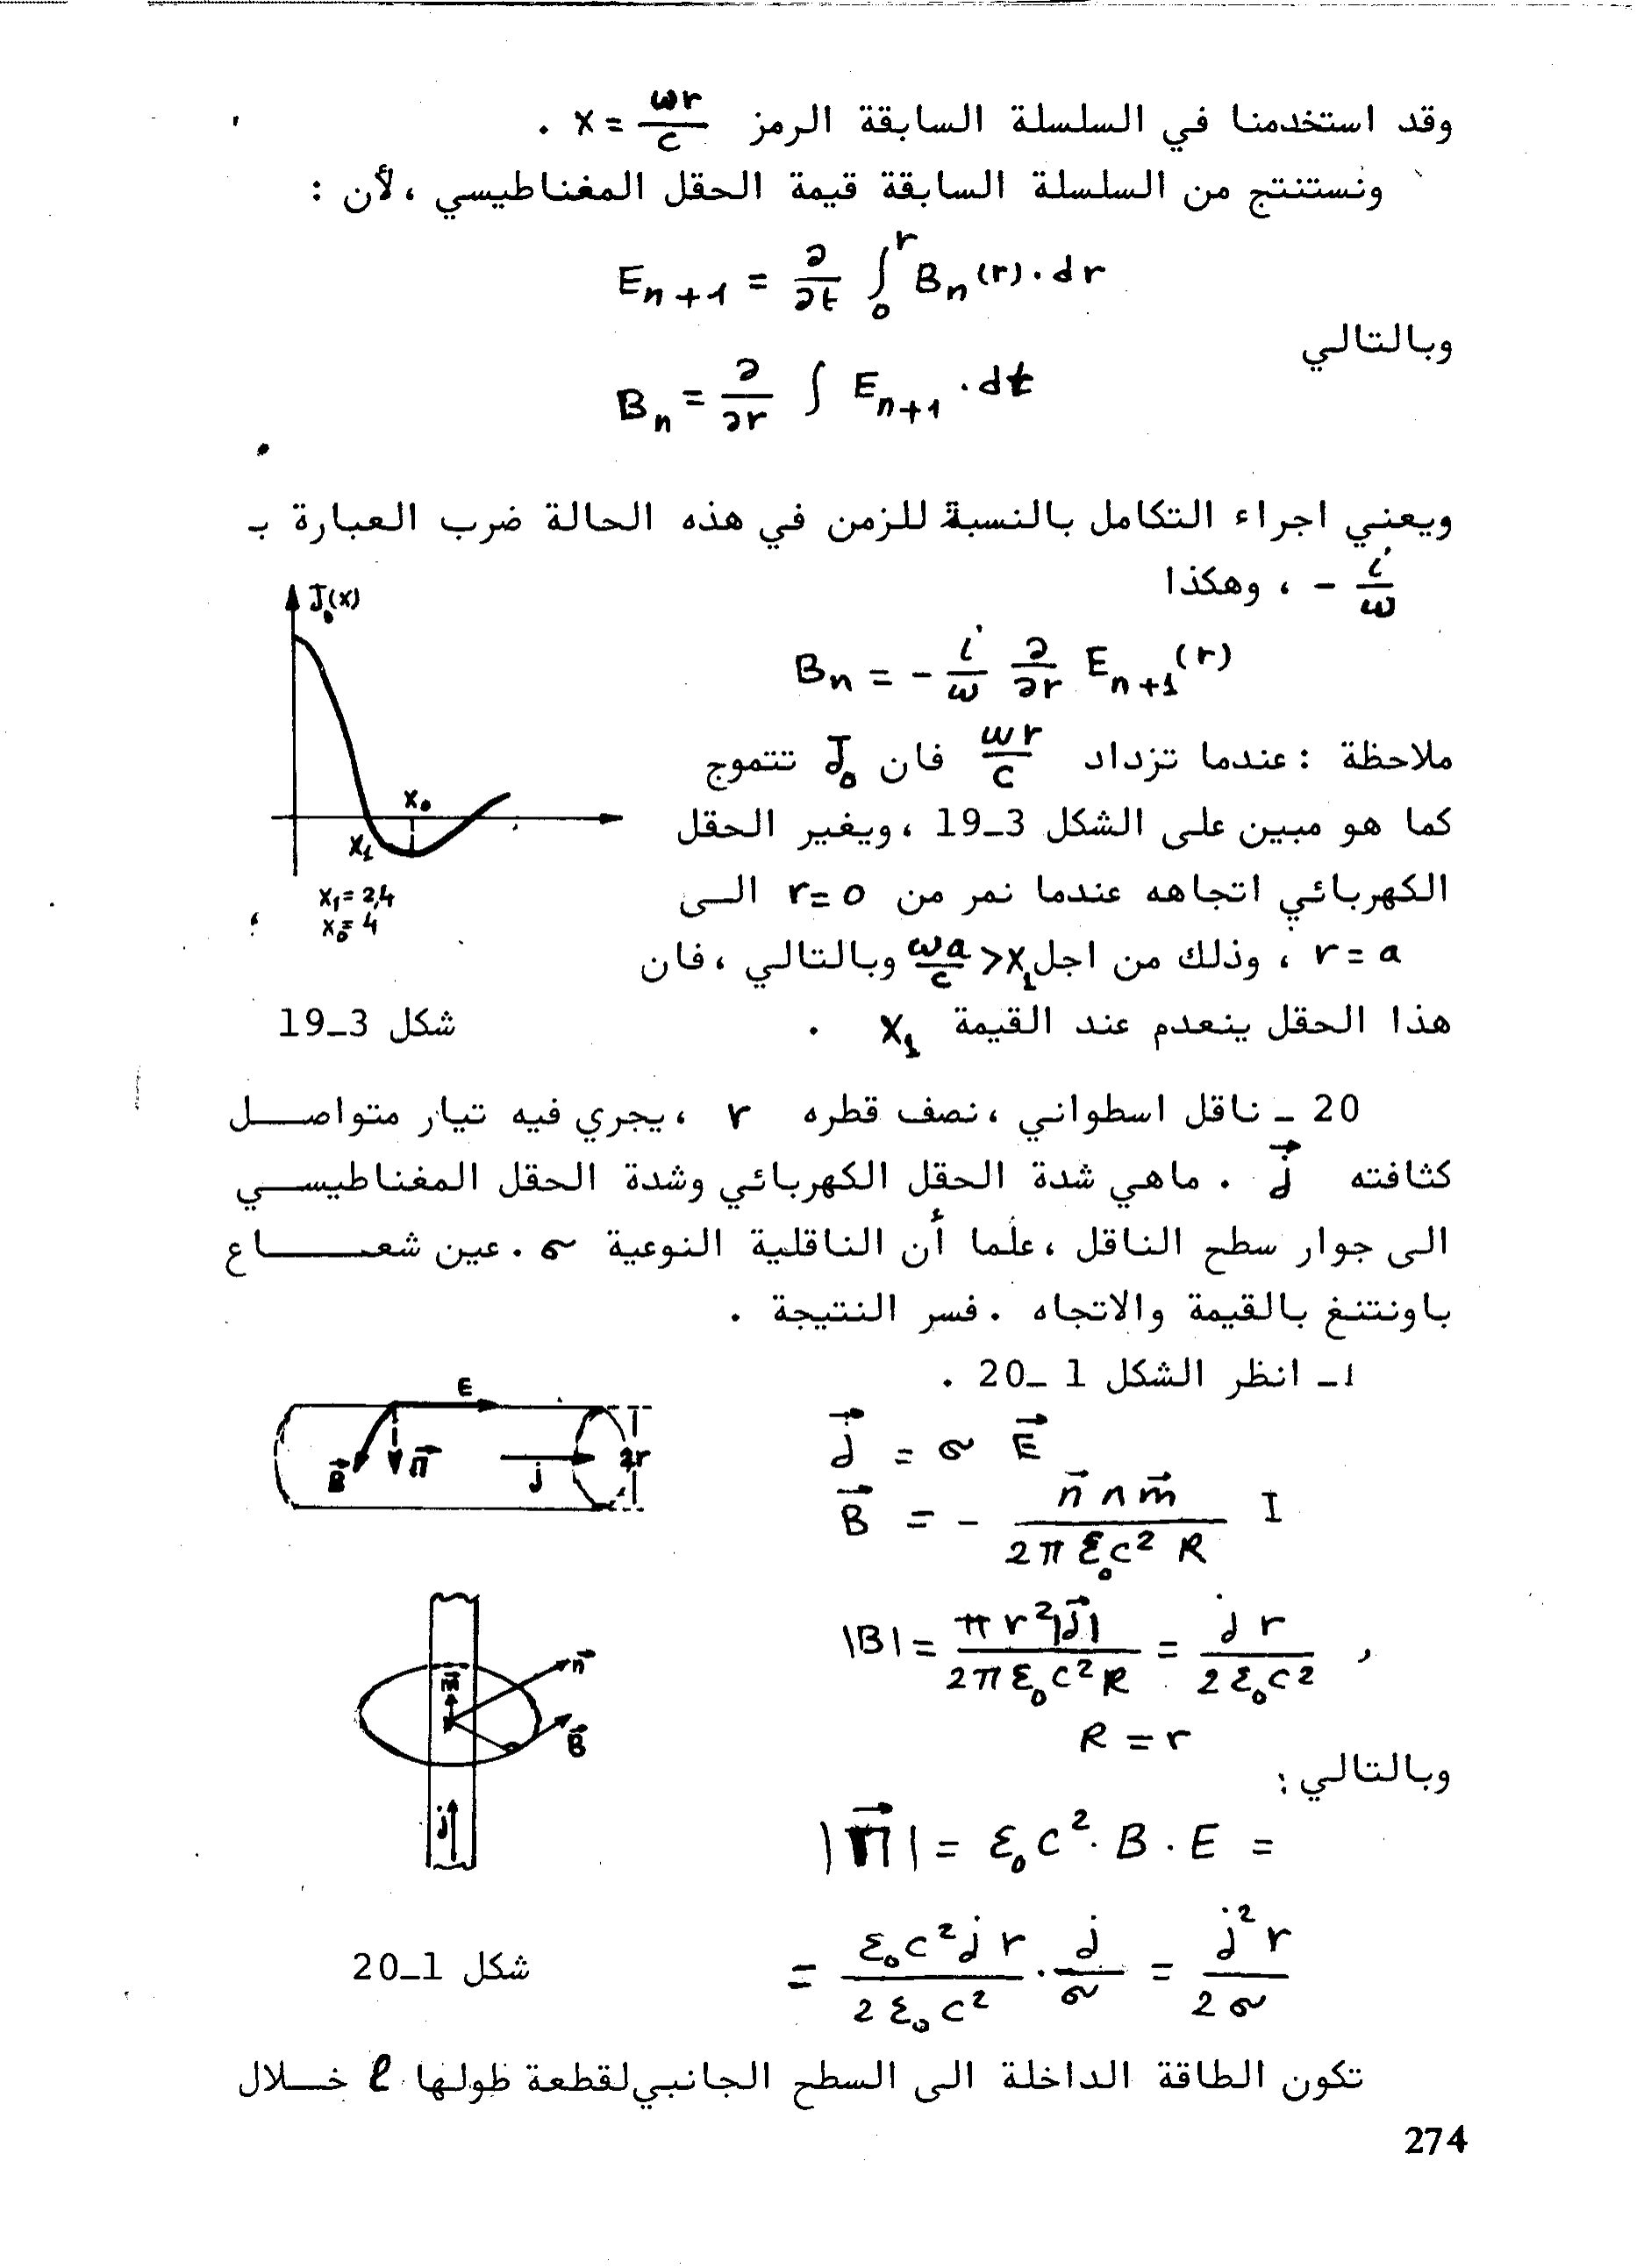 وقد استخدمنا في السلسلة السابقة الرمز x = ωr/c .
ونستنتج من السلسلة السابقة قيمة الحقل المغناطيسي ، لأن :
E_{n+1} = ∂/∂t ∫_0^r B_n(r) · dr
وبالتالي
B_n = ∂/∂r ∫ E_{n+1} · dt
ويعني اجراء التكامل بالنسبة للزمن في هذه الحالة ضرب العبارة بـ
- i/ω ، وهكذا
B_n = - i/ω ∂/∂r E_{n+1}(r)
ملاحظة : عندما تزداد ωr/c فان J₀ تتموج
كما هو مبين على الشكل 3_19 ، ويغير الحقل
الكهربائي اتجاهه عندما نمر من r = 0 الى
r = a ، وذلك من اجل ωa/c > x₁ وبالتالي ، فان
هذا الحقل ينعدم عند القيمة x₁ .
J₀(x)
x₀
x₁
x₁ = 2,4
x₀ = 4
شكل 3_19
20 _ ناقل اسطواني ، نصف قطره r ، يجري فيه تيار متواصل
كثافته j⃗ . ماهي شدة الحقل الكهربائي وشدة الحقل المغناطيسي
الى جوار سطح الناقل ، علما أن الناقلية النوعية σ . عين شعاع
باونتنغ بالقيمة والاتجاه . فسر النتيجة .
1_ انظر الشكل 1 _20 .
j⃗ = σ E⃗
B⃗ = - n⃗ ∧ m⃗ / 2π ε₀ c² R I
|B| = π r² |j⃗| / 2π ε₀ c² R = j r / 2 ε₀ c² ,
R = r
وبالتالي :
|Π⃗| = ε₀ c² · B · E =
= ε₀ c² j r / 2 ε₀ c² · j / σ = j² r / 2 σ
E
B⃗
Π⃗
j
2r
m⃗
n⃗
B⃗
j
شكل 1_20
تكون الطاقة الداخلة الى السطح الجانبي لقطعة طولها ℓ خلال
274